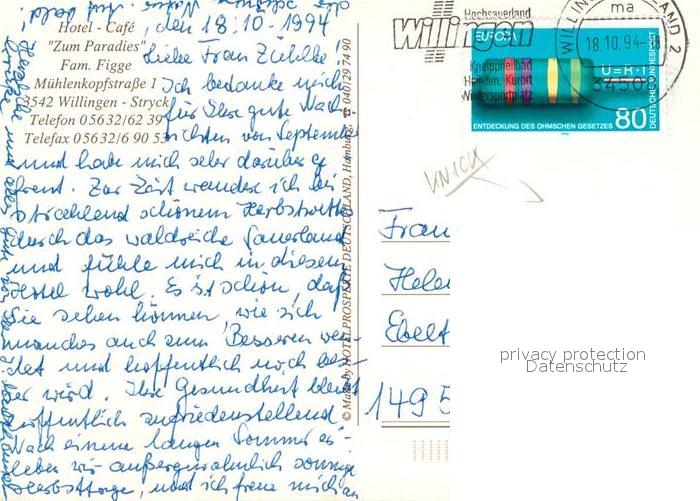 Hotel - Café
"Zum Paradies"
Fam. Figge
Mühlenkopfstraße 1
3542 Willingen - Stryck
Telefon 05632/62 39
Telefax 05632/6 90 53
, den 18.10.1994
Liebe Frau Zühlke!
Ich bedanke mich
für Ihre gute Nach-
richten von September
und habe mich sehr darüber ge
freut. Zur Zeit wandere ich bei
strahlend schönem Herbstwetter
durch das waldreiche Sauerland
und fühle mich in diesem
Hotel wohl. Es ist schön, daß
Sie sehen können, wie sich
manches auch zum Besseren wen-
det und hoffentlich noch bes-
ser wird. Ihre Gesundheit bleibt
hoffentlich zufriedenstellend.
Nach einem langen Sommer er-
leben wir außergewöhnlich sonnige
Herbsttage, und ich freue mich an
© Made by HOTELPROSPEKTE DEUTSCHLAND, Hamburg ☎ 040/29 74 90
Hochsauerland
Willingen
Kneippheilbad
Heilklim. Kurort
Wintersportplatz
WILLINGEN
LAND 2
ma
18.10.94
34508
EUROPA
U=R·I
ENTDECKUNG DES OHMSCHEN GESETZES
80
DEUTSCHE BUNDESPOST
1994
UNICA
Frau
Helen
Ebelt
1495
privacy protection
Datenschutz